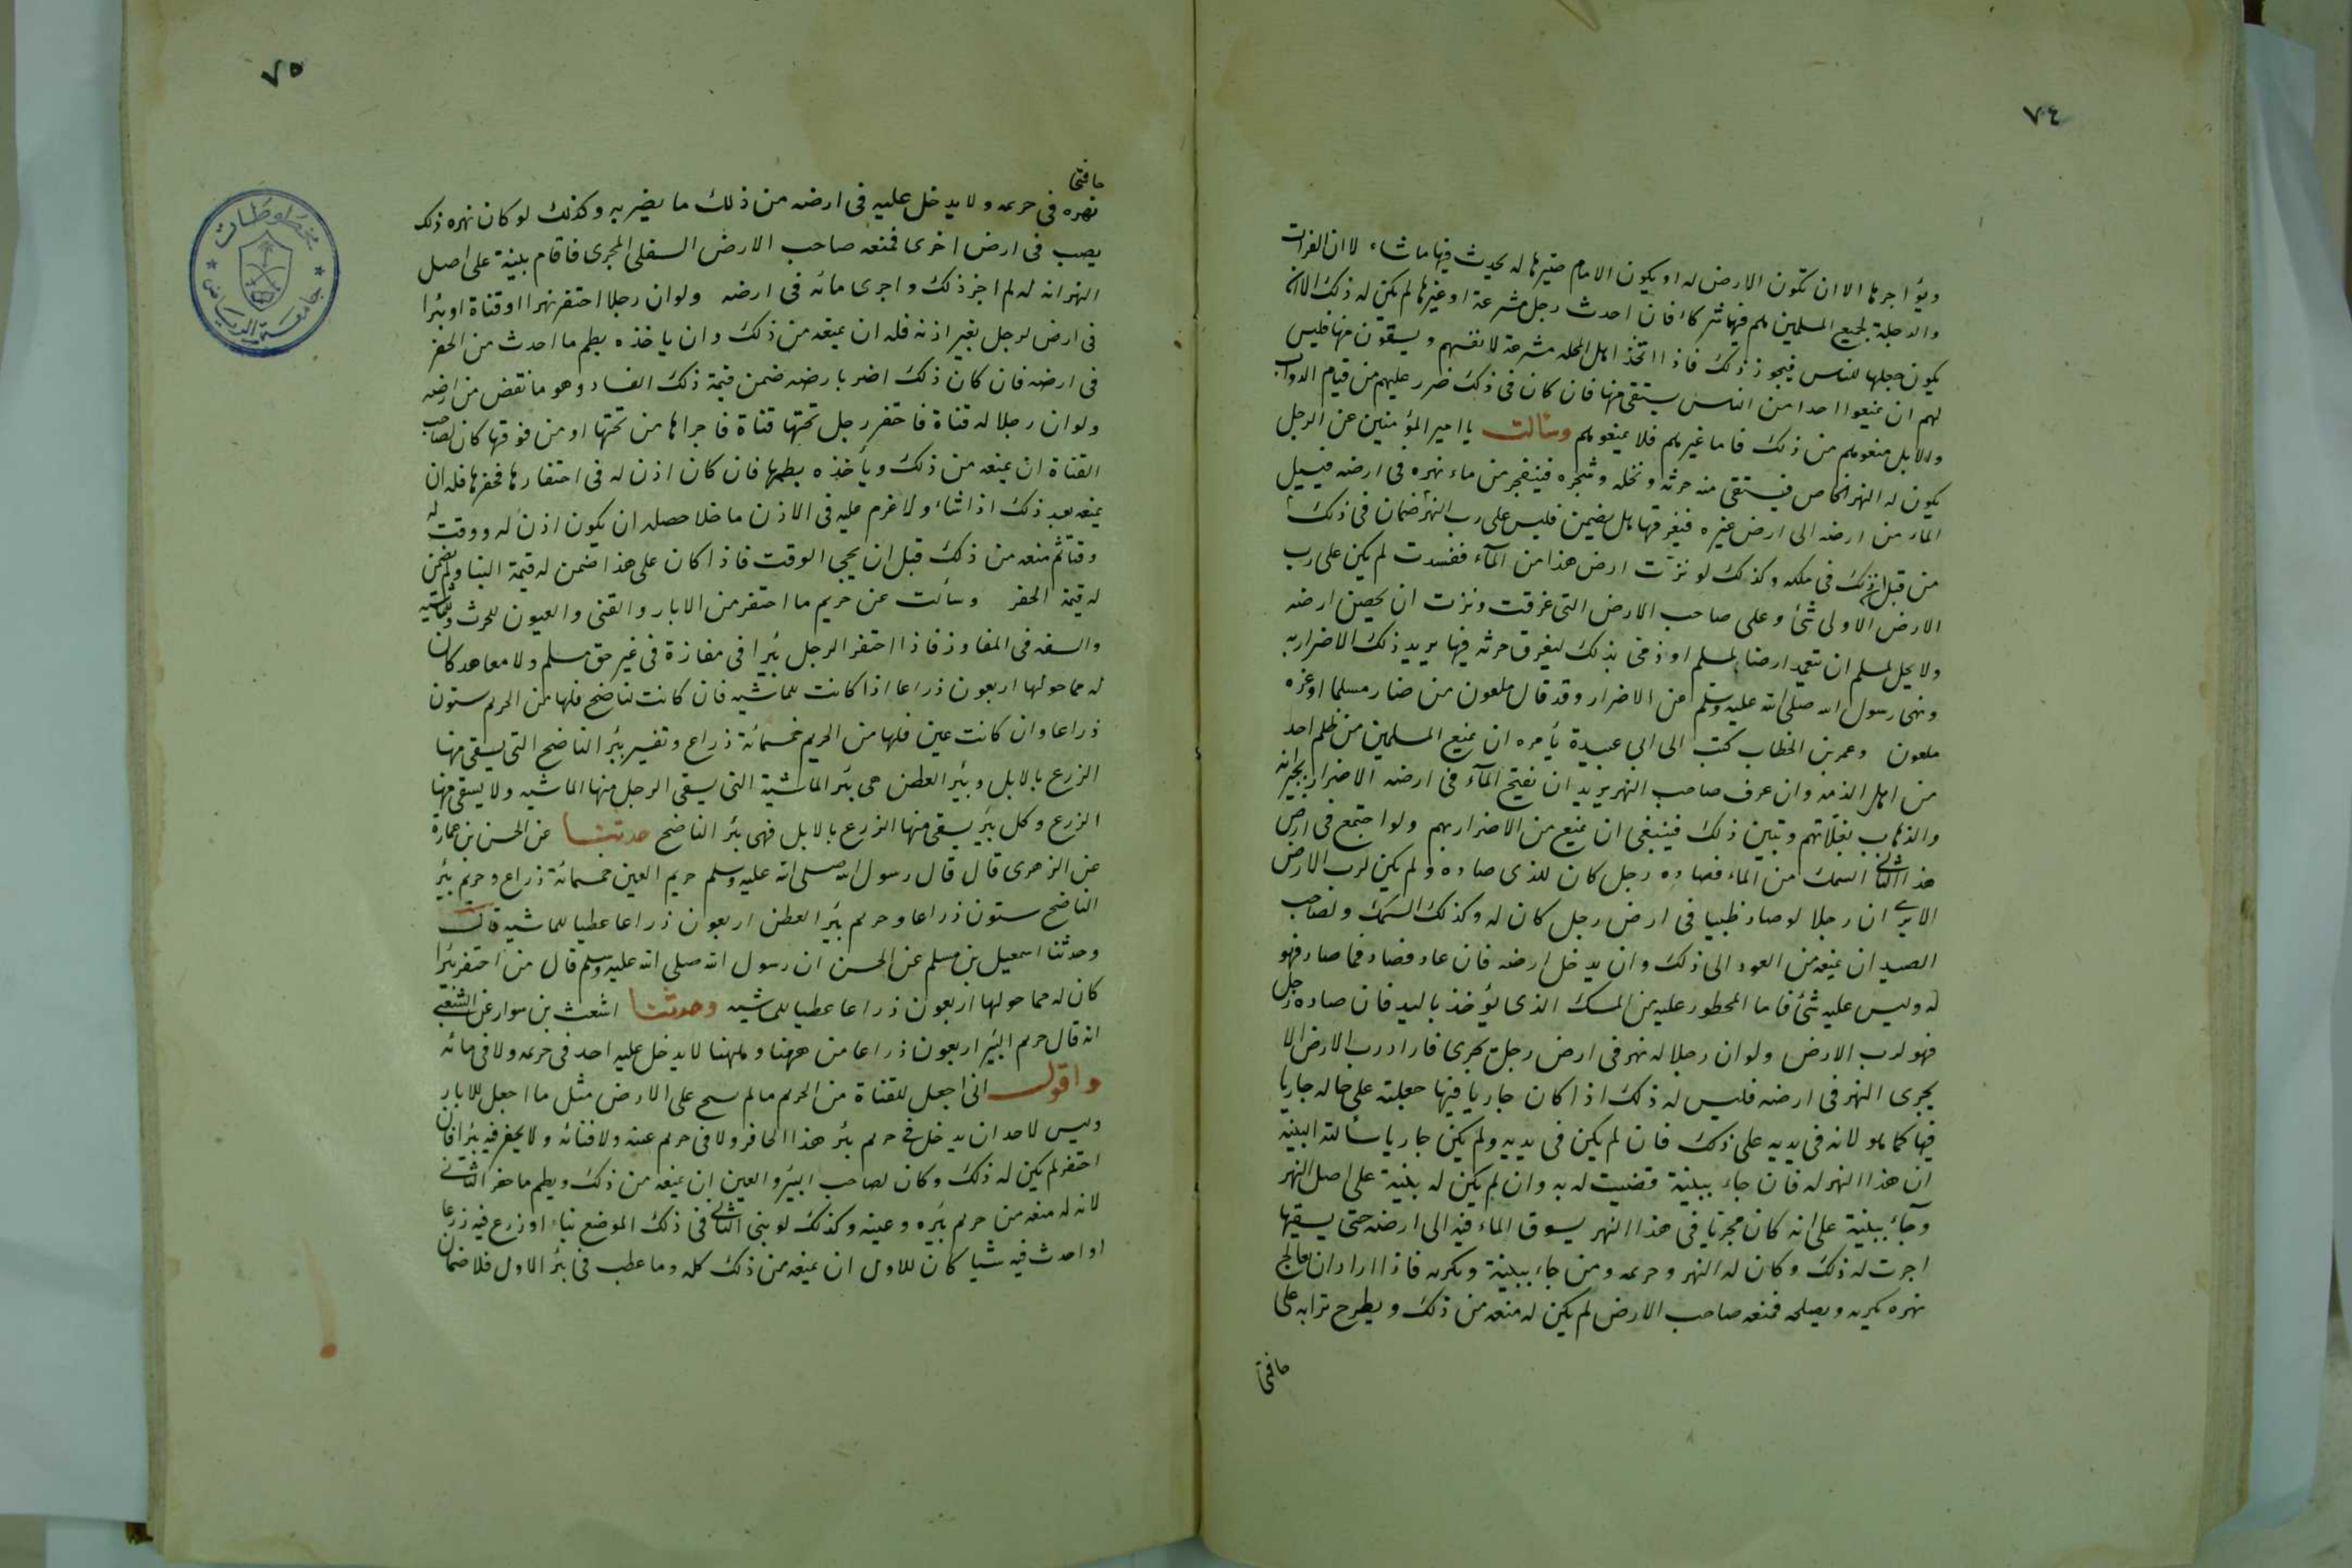 ٧٤
ويؤاجرها الا ان تكون الارض له او يكون الامام صيرها له يحدث فيها ما شاء لا ان الفرات
والدجلة لجميع المسلمين هم فيها شركاء فان احدث رجل مشرعة او غيرها لم يكن له ذلك الا ان
يكون جعلها للناس فيجوز ذلك فاذا اتخذ اهل المحله مشرعة لانفسهم ويسقون منها فليس
لهم ان يمنعوا احدا من الناس يستقى منها فان كان فى ذلك ضرر عليهم من قيام الدواب
والابل منعوهم من ذلك فاما غيرهم فلا يمنعوهم وسألت يا امير المؤمنين عن الرجل
يكون له النهر الخاص فيستقى منه حرثه ونخله وشجره فينفجر من ماء نهره فى ارضه فيسيل
الماء من ارضه الى ارض غيره فيغرقها هل يضمن فليس على رب النهر ضمان فى ذلك
من قبل ان ذلك فى ملكه وكذلك لو نزت ارض هذا من المآء ففسدت لم يكن على رب
الارض الاولى شئ وعلى صاحب الارض التى غرقت ونزت ان يحصن ارضه
ولا يحل لمسلم ان يتعمد ارضا لمسلم او ذمى بذلك ليغرق حرثه فيها يريد ذلك الاضرار به
ونهى رسول الله صلى الله عليه وسلم عن الاضرار وقد قال ملعون من ضار مسلما او غره
ملعون وعمر بن الخطاب كتب الى ابى عبيدة يأمره ان يمنع المسلمين من ظلم احد
من اهل الذمه وان عرف صاحب النهر يريد ان يفتح المآء فى ارضه الاضرار بجيرانه
والذهاب بغلاتهم وتبين ذلك فينبغى ان يمنع من الاضرار بهم ولو اجتمع فى ارض
هذا الثانى السمك من الماء فصاده رجل كان للذى صاده ولم يكن لرب الارض
الا يرى ان رجلا لو صاد ظبيا فى ارض رجل كان له وكذلك السمك ولصاحب
الصيد ان يمنعه من العود الى ذلك وان يدخل ارضه فان عاد فصاد فما صاد فهو
له وليس عليه شئ فاما المحطور عليه من السمك الذى يؤخذ باليد فان صاده رجل
فهو لرب الارض ولو ان رجلا له نهر فى ارض رجل يجرى فاراد رب الارض الا
يجرى النهر فى ارضه فليس له ذلك اذا كان جاريا فيها جعلته على حاله جاريا
فيها كما هو لانه فى يديه على ذلك فان لم يكن فى يديه ولم يكن جاريا سألته البينه
ان هذا النهر له فان جاء ببينة قضيت له به وان لم يكن له بينة على اصل النهر
وجاء ببينة على انه كان مجريا فى هذا النهر يسوق الماء فيه الى ارضه حتى يسقيها
اجرت له ذلك وكان له النهر وحريمه ومن جاء ببينة وبكريه فاذا اراد ان يعالج
نهره يكريه ويصلحه فمنعه صاحب الارض لم يكن له منعه من ذلك ويطرح ترابه على
حافتى
٧٥
حافتى
نهره فى حريمه ولا يدخل عليه فى ارضه من ذلك ما يضر به وكذلك لو كان نهره ذلك
يصب فى ارض اخرى فمنعه صاحب الارض السفلى المجرى فاقام بينة على اصل
النهر انه له لم اجز ذلك واجرى مائه فى ارضه ولو ان رجلا احتفر نهرا او قناة او بئرا
فى ارض لرجل بغير اذنه فله ان يمنعه من ذلك وان ياخذه بطم ما احدث من الحفر
فى ارضه فان كان ذلك اضر بارضه ضمن قيمة ذلك الفساد وهو ما نقض من ارضه
ولو ان رجلا له قناة فاحتفر رجل تحتها قناة فاجراها من تحتها او من فوقها كان لصاحب
القناة ان يمنعه من ذلك ويأخذه بطمها فان كان اذن له فى احتفارها فحفرها فله ان
يمنعه بعد ذلك اذا شاء ولا غرم عليه فى الاذن ما خلا خصله ان يكون اذن له ووقت له
وقتا ثم منعه من ذلك قبل ان يجى الوقت فاذا كان على هذا ضمن له قيمة البنا ولم يضمن
له قيمة الحفر وسألت عن حريم ما احتفر من الابار والقنى والعيون للحرث وللماشيه
والسفه فى المفاوز فاذا احتفر الرجل بئرا فى مفازة فى غير حق مسلم ولا معاهد كان
له مما حولها اربعون ذراعا اذا كانت للماشيه فان كانت لناضح فلها من الحريم ستون
ذراعا وان كانت عين فلها من الحريم خمسمائة ذراع وتفسير بئر الناضح التى يسقى منها
الزرع بالابل وبئر العطن هى بئر الماشية التى يسقى الرجل منها الماشيه ولا يسقى منها
الزرع وكل بئر يسقى منها الزرع بالابل فهى بئر الناضح حدثنا عن الحسن بن عمارة
عن الزهرى قال قال رسول الله صلى الله عليه وسلم حريم العين خمسمائة ذراع وحريم بئر
الناضح ستون ذراعا وحريم بئر العطن اربعون ذراعا عطيا للماشية قال
وحدثنا اسمعيل بن مسلم عن الحسن ان رسول الله صلى الله عليه وسلم قال من احتفر بئرا
كان له مما حولها اربعون ذراعا عطيا للماشيه وحدثنا اشعث بن سوار عن الشعبى
انه قال حريم البئر اربعون ذراعا من ههنا وههنا لا يدخل عليه احد فى حريمه ولا فى مائه
واقول انى اجعل للقناة من الحريم ما لم يسح على الارض مثل ما اجعل للابار
وليس لاحد ان يدخل فى حريم بئر هذا الحافر ولا فى حريم عينه ولا فنائه ولا يحفر فيه بئرا فان
احتفر لم يكن له ذلك وكان لصاحب البئر والعين ان يمنعه من ذلك ويطم ما حفر الثانى
لانه له منعه من حريم بئره وعينه وكذلك لو بنى الثانى فى ذلك الموضع بناء او زرع فيه زرعا
او احدث فيه شيا كان للاول ان يمنعه من ذلك كله وما عطب فى بئر الاول فلا ضمان
مخطوطات
جامعة الرياض